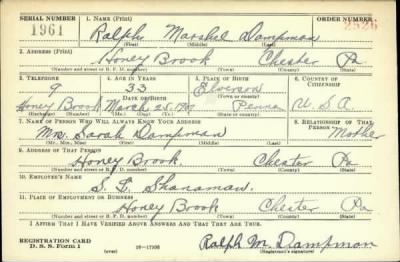 SERIAL NUMBER 1. NAME (Print) ORDER NUMBER
1961 Ralph Marshel Dampman 2526
(First) (Middle) (Last)
2. ADDRESS (Print)
Honey Brook Chester Pa
(Number and street or R. F. D. number) (Town) (County) (State)
3. TELEPHONE 4. AGE IN YEARS 5. PLACE OF BIRTH 6. COUNTRY OF CITIZENSHIP
9 33 Elverson
DATE OF BIRTH (Town or county)
Honey Brook March 25, 1907 Penna U.S.A
(Exchange) (Number) (Mo.) (Day) (Yr.) (State or country)
7. NAME OF PERSON WHO WILL ALWAYS KNOW YOUR ADDRESS 8. RELATIONSHIP OF THAT PERSON
Mrs. Sarah Dampman Mother
(Mr., Mrs., Miss) (First) (Middle) (Last)
9. ADDRESS OF THAT PERSON
Honey Brook Chester Pa
(Number and street or R. F. D. number) (Town) (County) (State)
10. EMPLOYER'S NAME
S. Shanaman.
11. PLACE OF EMPLOYMENT OR BUSINESS
Honey Brook Chester Pa
(Number and street or R. F. D. number) (Town) (County) (State)
I AFFIRM THAT I HAVE VERIFIED ABOVE ANSWERS AND THAT THEY ARE TRUE.
REGISTRATION CARD
D. S. S. Form 1 (over) 16-17105 Ralph M. Dampman
(Registrant's signature)